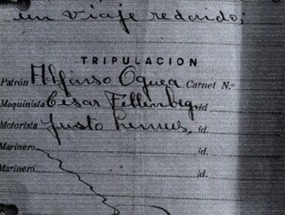 un viaje redondo,
TRIPULACION
Patrón Alfonso Oguea Carnet N.º
Maquinista Cesar Fillenbeg id
Motorista Justo Lemus id.
Marinero id.
Marinero id.